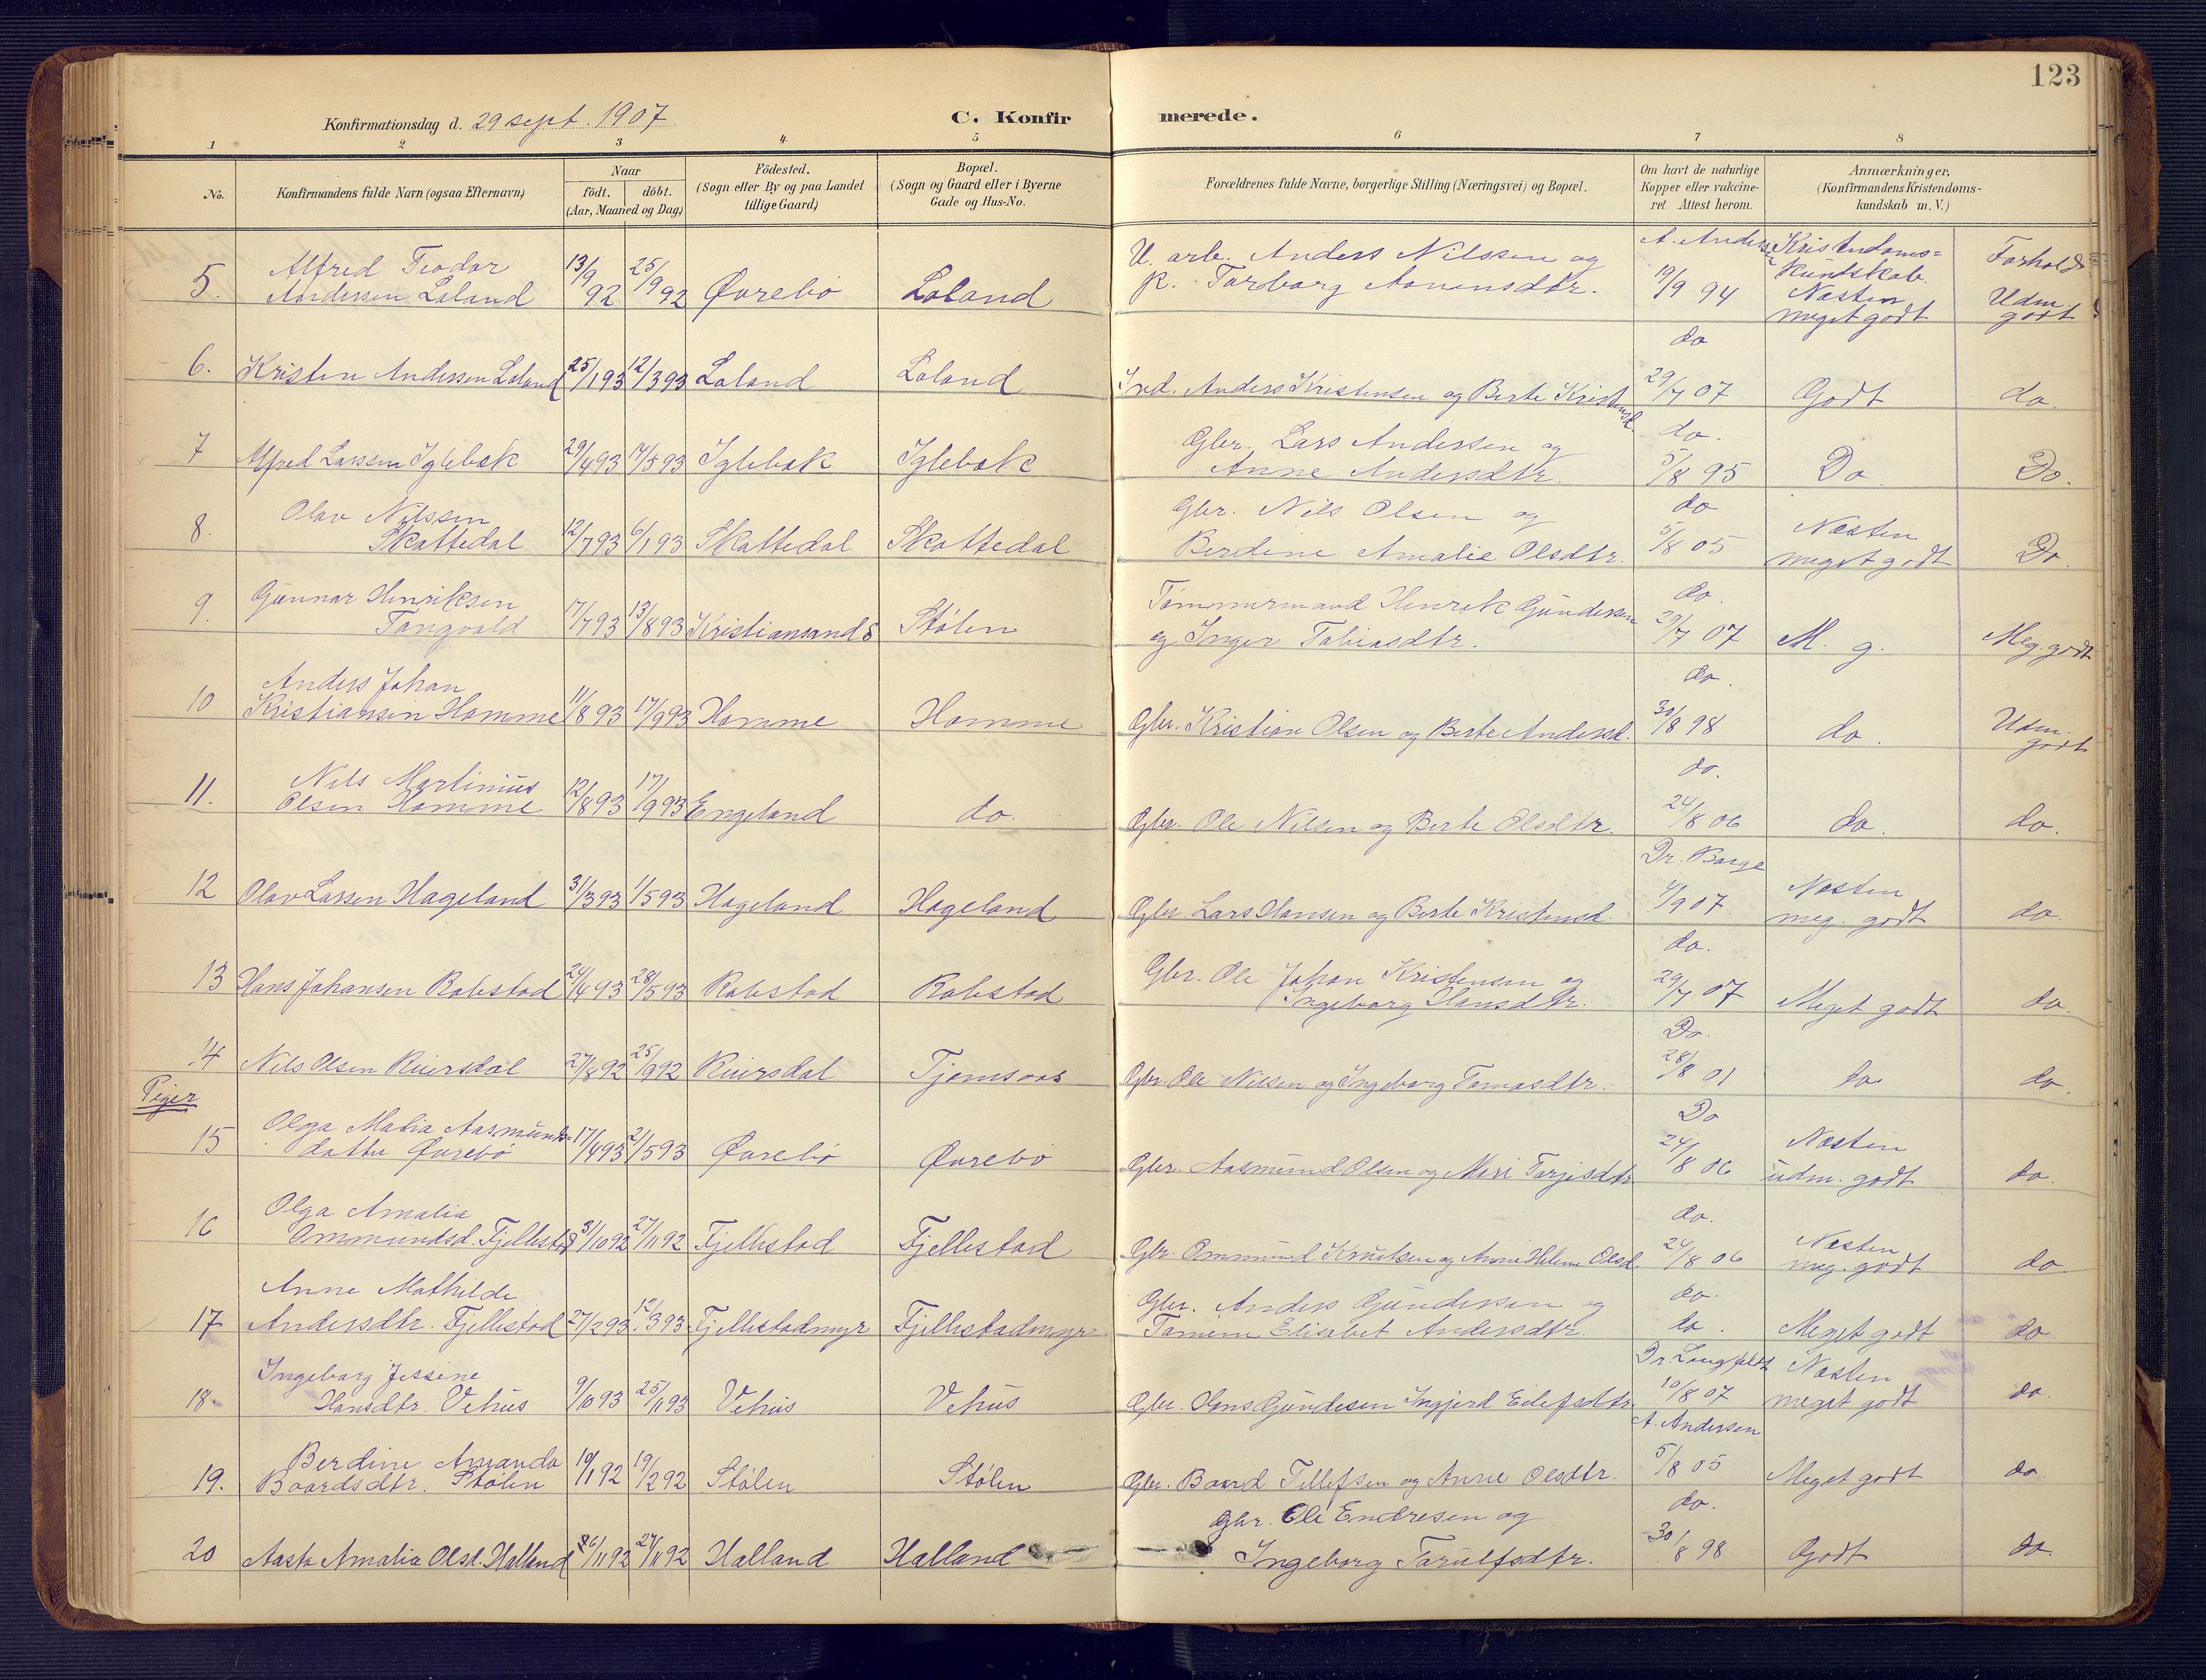 123
Konfirmationsdag d. 29 sept. 1907.
C. Konfirmerede.
1 2 3 4 5 6 7 8
No.
Konfirmandens fulde Navn (ogsaa Efternavn)
Naar
födt. döbt.
(Aar, Maaned og Dag)
Födested.
(Sogn eller By og paa Landet
tillige Gaard)
Bopæl.
(Sogn og Gaard eller i Byerne
Gade og Hus-No.
Forældrenes fulde Navne, borgerlige Stilling (Næringsvei) og Bopæl.
Om havt de naturlige
Kopper eller vakcine-
ret. Attest herom.
Anmærkninger,
(Konfirmandens Kristendoms-
kundskab m. V.)
Kristendoms=
kundskab
Forhold
5. Alfred Teodor
Andersen Loland 13/9 92 25/9 92 Øvrebö Loland
U. arb. Anders Nilssen og
k. Torborg Aanensdtr.
A. Andersen
19/9 94
Næsten
meget godt
Udm.
godt
6. Kristen Andersen Loland 25/1 93 12/3 93 Loland Loland
Ind. Anders Kristensen og Berte Kristensd.
do
29/7 07 Godt do.
7 Alfred Larssen Iglebæk 29/4 93 14/5 93 Iglebæk Iglebæk
Gbr. Lars Andersen og
Anne Andersdtr.
do.
5/8 95 Do Do.
8. Olav Nilssen
Skattedal 12/7 93 6/1 93 Skattedal Skattedal
Gbr. Nils Olsen og
Berdine Amalie Olsdtr.
do
5/8 05
Næsten
meget godt Do.
9. Gunnar Henriksen
Tangvald 17/7 93 13/8 93 Kristiansand S Stölen
Tömmermand Henrik Gundersen
og Inger Tobiasdtr.
do.
29/7 07 M. g. Meg. godt
10 Anders Johan
Kristiansen Homme 11/8 93 17/9 93 Homme Homme
Gbr. Kristian Olsen og Berte Andersd.
do.
30/8 98 do. Udm.
godt
11. Nils Martinius
Olsen Homme 12/8 93 17/9 93 Engeland do.
Gbr. Ole Nilsen og Berte Olsdtr.
do.
24/8 06 do. do.
12 Olav Larsen Hageland 31/3 93 1/5 93 Hageland Hageland
Gbr. Lars Hansen og Berte Kristensd.
Dr. Borge
4/9 07
Næsten
meg. godt do.
13 Hans Johansen Robstad 24/4 93 28/5 93 Robstad Robstad
Gbr. Ole Johan Kristensen og
Ingeborg Hansdtr.
do.
29/7 07 Meget godt do.
14 Nils Olsen Ruersdal 27/8 92 25/9 92 Ruersdal Tjomsaas
Gbr. Ole Nilsen og Ingeborg Tomasdtr.
Do.
28/8 01 do do
Piger
15 Olga Maria Aasmunds=
datter Øvrebö 17/4 93 21/5 93 Øvrebö Øvrebö
Gbr. Aasmund Olsen og Mari Torjesdtr
Do
24/8 06
Næsten
udm. godt do.
16 Olga Amalia
Ommundsd. Fjellestad 31/10 92 27/11 92 Fjellestad Fjellestad
Gbr. Ommund Knutsen og Anne Helene Olsd.
do.
24/8 06
Næsten
meg. godt do.
17 Anne Mathilde
Andersdtr. Fjellestad 27/2 93 12/3 93 Fjellestadmyr Fjellestadmyr
Gbr. Anders Gundersen og
Tomine Elisabet Andersdtr.
do.
do. Meget godt do
18. Ingeborg Jessine
Hansdtr. Vehus 9/10 93 25/11 93 Vehus Vehus
Gbr. Hans Gundesen Ingjerd Eilefsdtr
Dr. Langfeldt
10/8 07
Næsten
meget godt do.
19. Berdine Amanda
Baardsdtr. Stölen 19/1 92 19/2 92 Stölen Stölen
Gbr. Baard Tellefsen og Anne Olsdtr.
A. Andersen
5/8 05 Meget godt do.
20 Aasta Amalia Olsd. Halland 26/11 92 27/11 92 Halland Halland
Gbr. Ole Endresen og
Ingeborg Torulfsdtr.
do.
30/8 98 Godt do.